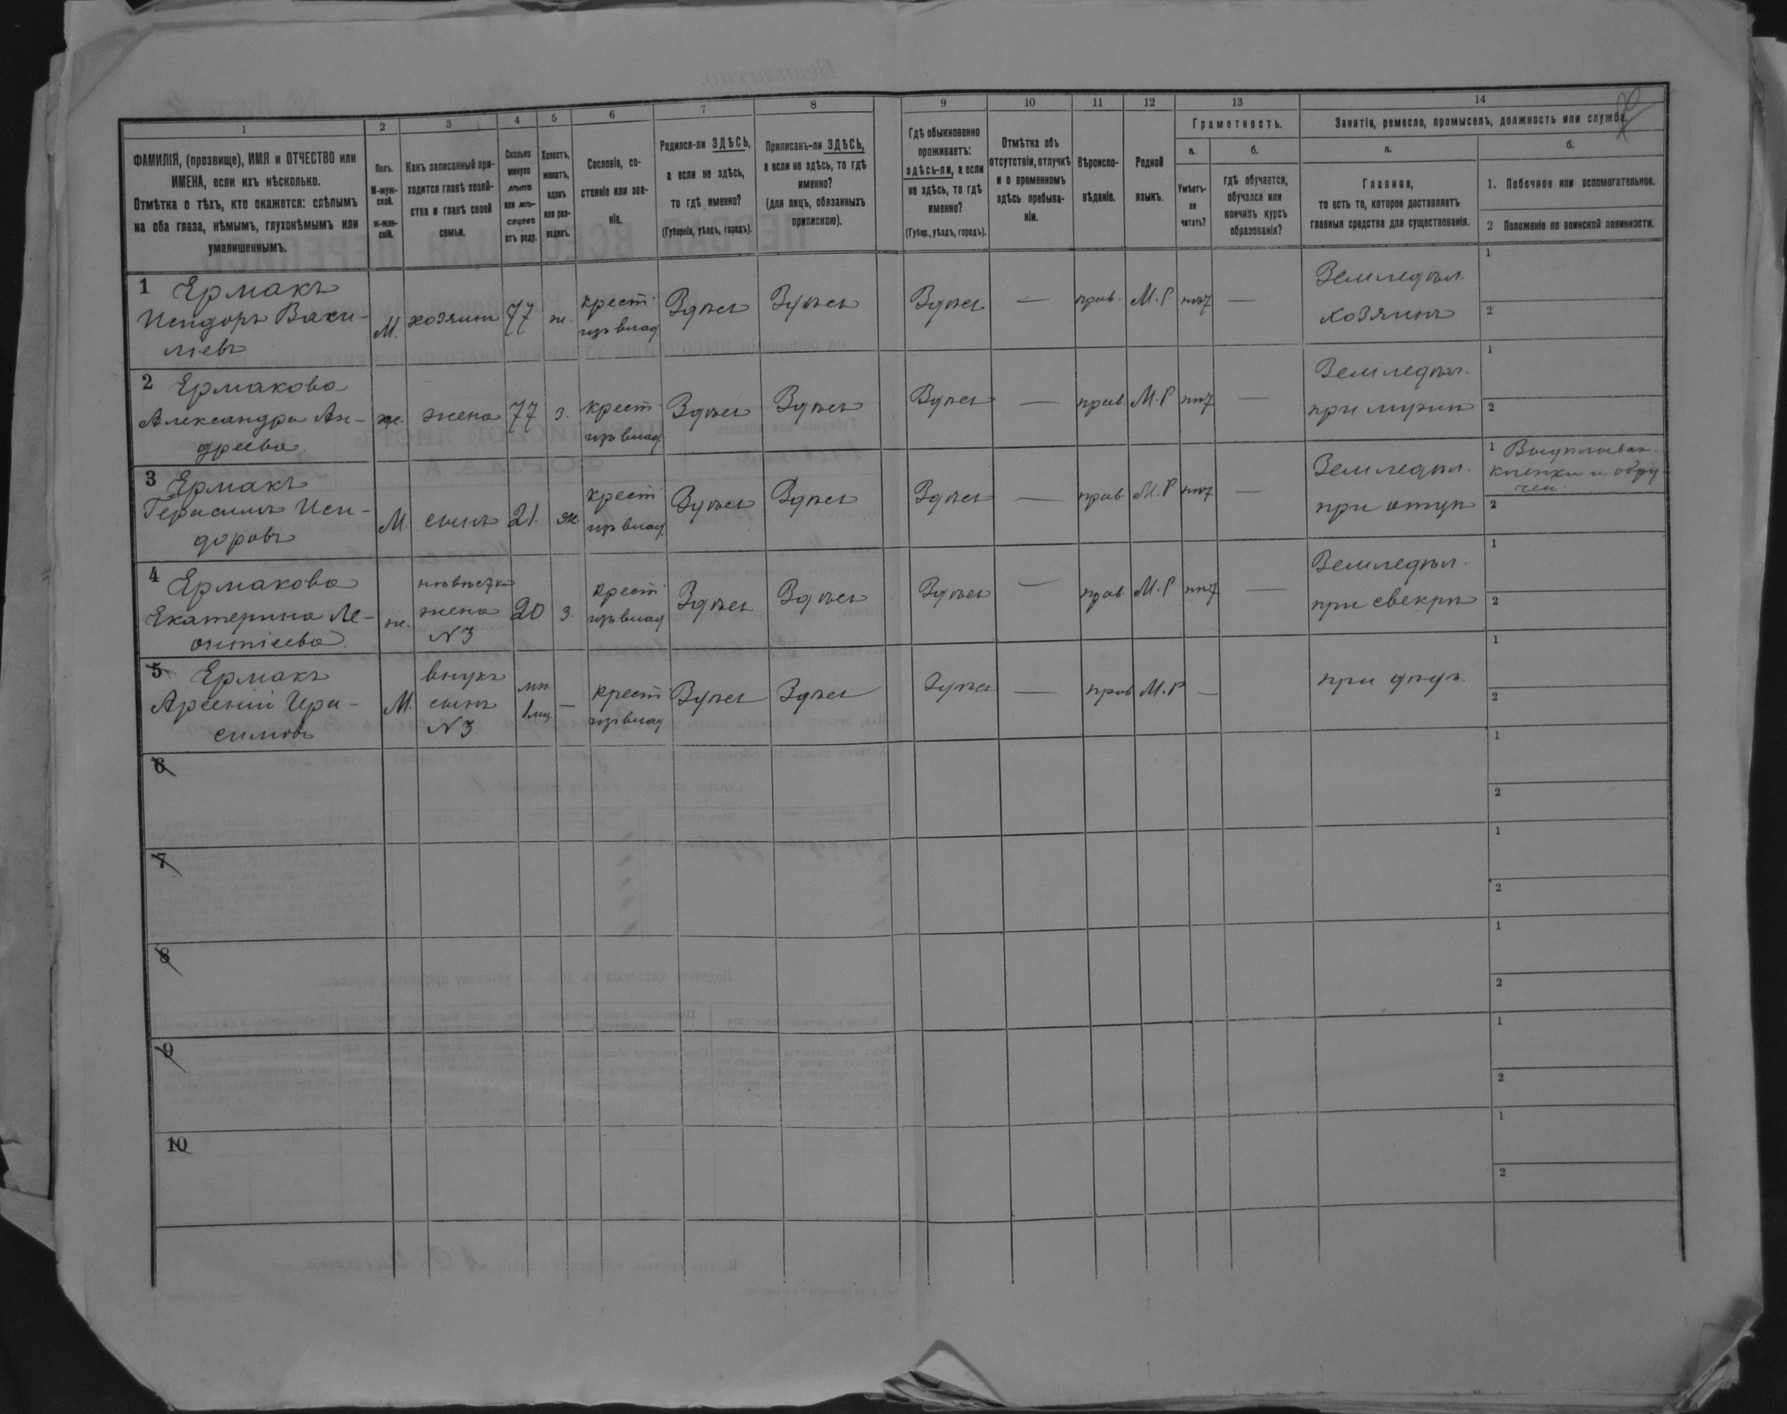 1
2
3
4
5
6
7
8
9
10
11
12
13
14
ФАМИЛІЯ, (прозвище), ИМЯ и ОТЧЕСТВО или
ИМЕНА, если ихъ нѣсколько.
Отмѣтка о тѣхъ, кто окажется: слѣпымъ
на оба глаза, нѣмымъ, глухонѣмымъ или
умалишеннымъ.
Полъ.
М-муж-
ской.
ж-жен-
скій.
Какъ записанный при-
ходится главѣ хозяй-
ства и главѣ своей
семьи.
Сколько
минуло
лѣтъ
или мѣ-
сяцевъ
отъ роду.
Холостъ,
женатъ,
вдовъ
или раз-
веденъ.
Сословіе, со-
стояніе или зва-
ніе.
Родился-ли ЗДѢСЬ,
а если не здѣсь,
то гдѣ именно?
(Губернія, уѣздъ, городъ).
Приписанъ-ли ЗДѢСЬ,
а если не здѣсь, то гдѣ
именно?
(для лицъ, обязанныхъ
припискою).
Гдѣ обыкновенно
проживаетъ:
здѣсь-ли, а если
не здѣсь, то гдѣ
именно?
(Губер., уѣздъ, городъ).
Отмѣтка объ
отсутствіи, отлучкѣ
и о временномъ
здѣсь пребыва-
ніи.
Вѣроиспо-
вѣданіе.
Родной
языкъ.
Грамотность.
а.
Умѣетъ-
ли
читать?
б.
гдѣ обучается,
обучался или
кончилъ курсъ
образованія?
Занятіе, ремесло, промыселъ, должность или служба.
а.
Главное,
то есть то, которое доставляетъ
главныя средства для существованія.
б.
1. Побочное или вспомогательное.
2 Положеніе по воинской повинности.
1 Ермакъ
Исидоръ Васи-
льевъ
М. хозяинъ 77 ж. крест. изъ влад. Здѣсь Здѣсь Здѣсь — прав. М.Р. нѣт —
Земледѣл.
хозяинъ
1
2
2 Ермакова
Александра Ан-
дреева
ж. жена 77 з. крест. изъ влад. Здѣсь Здѣсь Здѣсь — прав. М.Р нѣт —
Земледѣл.
при мужѣ
1
2
3 Ермакъ
Герасимъ Иси-
доровъ
М. сынъ 21. ж. крест. изъ влад. Здѣсь Здѣсь Здѣсь — прав. М.Р нѣт —
Земледѣл.
при отцѣ
1
2
4 Ермакова
Екатерина Ле-
онтіева
ж. невѣстка
жена
N 3
20 з. крест. изъ влад Здѣсь Здѣсь Здѣсь — прав. М.Р нѣт —
Земледѣл.
при свекрѣ
1
2
5 Ермакъ
Арсеній Гера-
симовъ
М. внукъ
сынъ
N 3
1 мц — крест изъ влад Здѣсь Здѣсь Здѣсь — прав М.Р —
при дѣдѣ
1
2
6
1
2
7
1
2
8
1
2
9
1
2
10
1
2